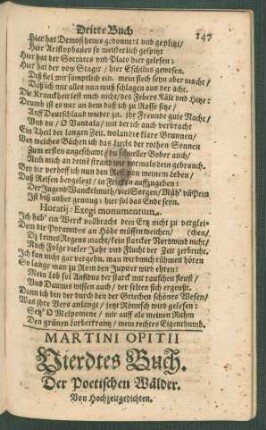 Dritte Buch
147
Hier hat Demosthenes gedonnert vnd geplitzt/
Hier Aristophanes so meisterlich gespitzt
Hier hat der Socrates vnd Plato hier gelesen:
Hier hat der von Stagir / hier Eschilus gewesen.
Diß fiel mir sämptlich ein. mein fleisch sehn aber macht/
Daß ich mir alles nun muß schlagen aus der acht.
Die Kranckheit lest mich nicht/ des Febers Kält vnd Hitze:
Drumb ist es mir an dem daß ich zu Rosse sitze/
Auff Deutschland wieder zu. ihr Freunde gute Nacht/
Vnd du / O Vandala/ mit der ich auch verbracht
Ein Theil der langen Zeit. vnd andre klare Brunnen/
Von welches Büchen ich das Liecht der rothen Sonnen
Zum ersten angeschawt/ du schneller Bober auch/
Nich mich an deine vormals dein gebrauch.
Bey dir verhoff ich nun den in meinem Leben/
Daß Reisen beygelegt/ in Frieden auffzugeben:
Der Jugend Wanckelmuth/ viel Sorgen/ Müh/ vñ Pein
Ist biß anher genung: hier sol das Ende seyn.
Horatij: Exegi monumentum.
Ich hab' ein Werck volbracht dem Ertz nicht zu verglei-
Dem die Pyramides an Höhe müssen weichen/ (chen/
Dz keines Regens macht/ kein starcker Nordwind nicht/
Noch Folge vieler Jahr vnd Flucht der Zeit zerbricht.
Ich kan nicht gar vergehn. man wird mich rühmen hören
So lange man zu Rom den Jupiter wird ehren:
Mein Lob sol Aufidus der starck mit rauschen fleust/
Vnd Daunus wissen auch/ der selten sich ergeust.
Dann ich bin der durch den der Griechen schönes Wesen/
Was jhre Vers anlangt/ jetzt Römisch wird gelesen:
Setz' O Melpomene/ mir auff als meinen Ruhm
Den grünen Lorberkrantz/ mein rechtes Eigenthumb.
MARTINI OPITII
Vierdtes Buch.
Der Poetischen Wälder.
Von Hochzeitgedichten.